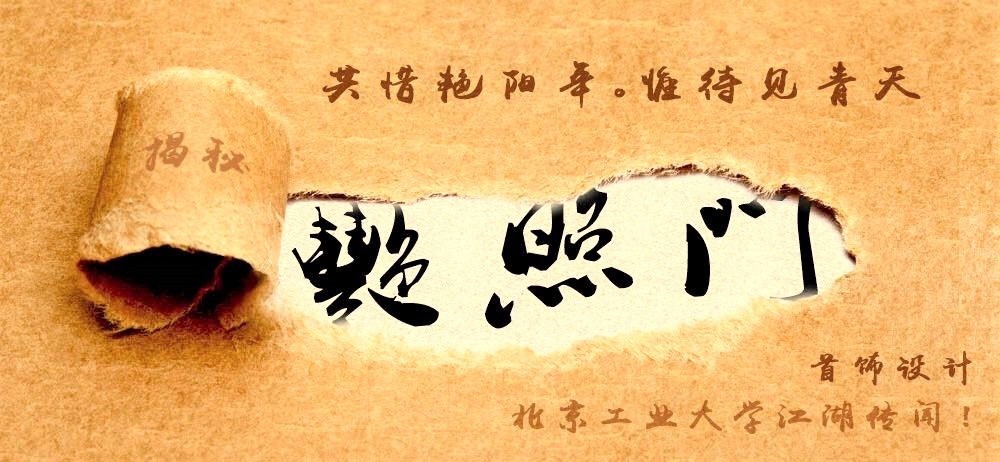 共惜艳阳年。惟待见青天
揭秘
艷照門
首饰设计
北京工业大学江湖传闻！